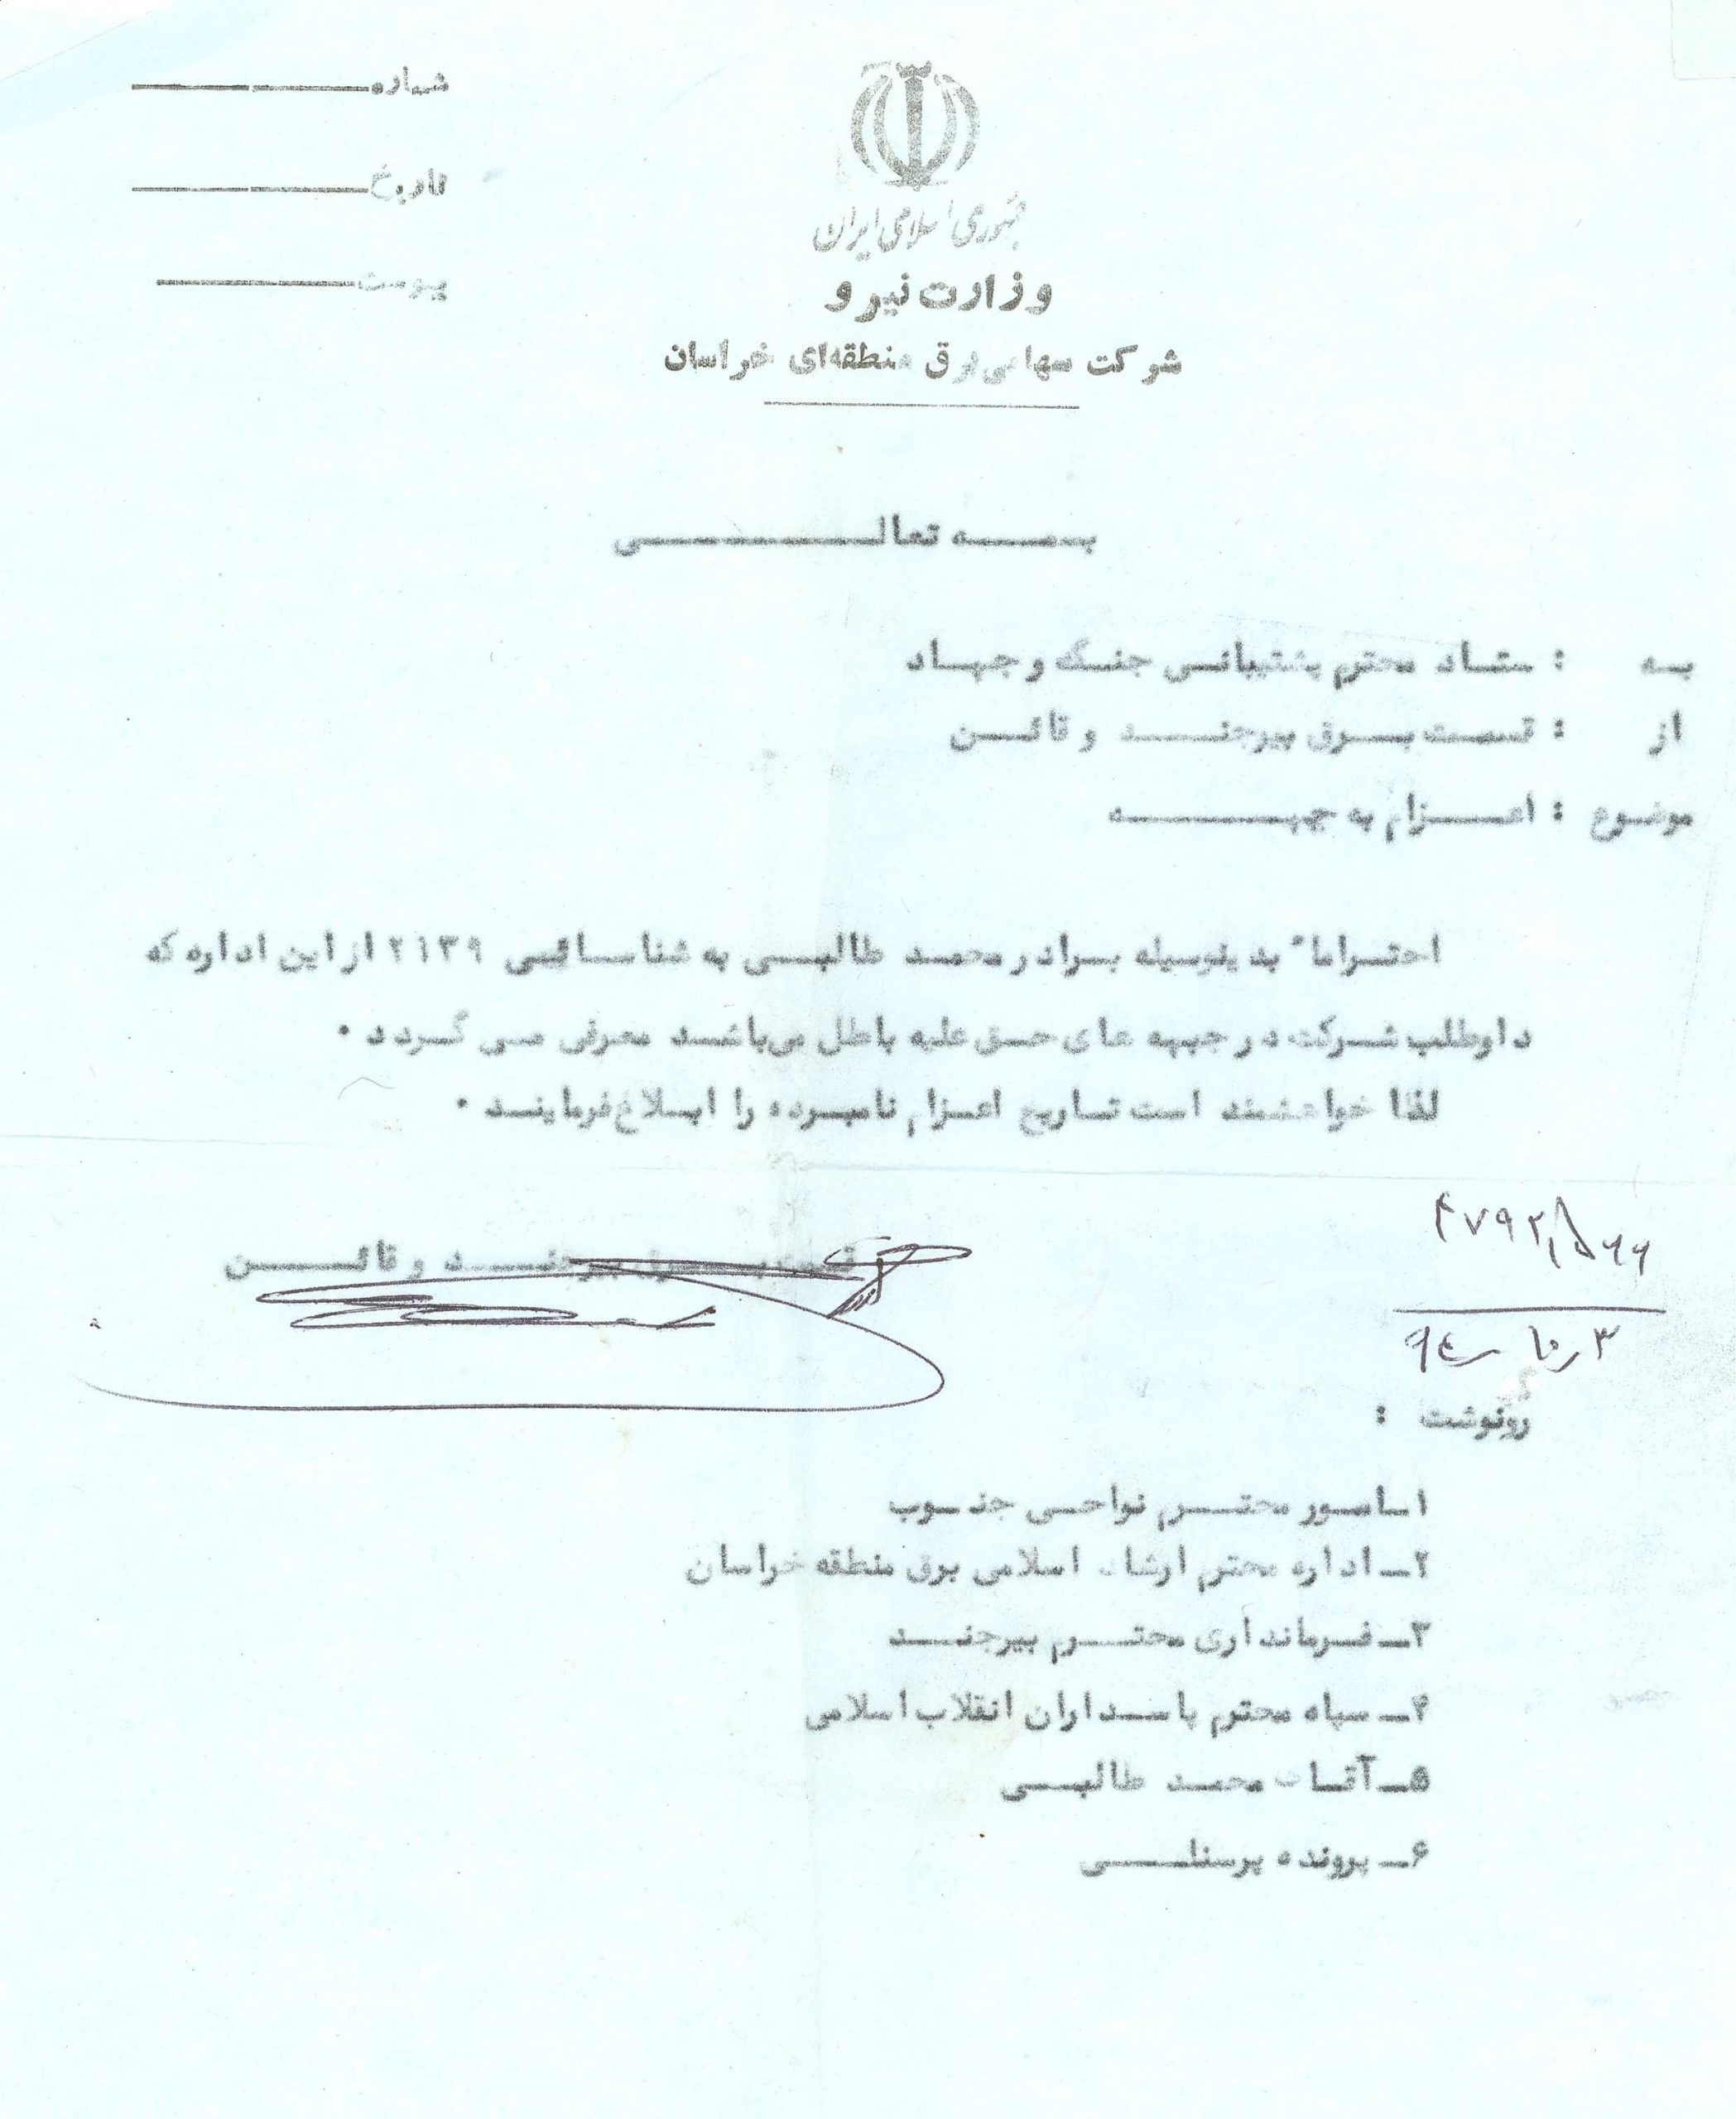 شماره
تاریخ
پیوست
جمهوری اسلامی ایران
وزارت نیرو
شرکت سهامی برق منطقه‌ای خراسان
بسمه تعالی
به : ستاد محترم پشتیبانی جنگ و جهاد
از : قسمت برق بیرجند و قائن
موضوع : اعزام به جبهه
احتراما" بدینوسیله برادر محمد طالبی به شناسائی ۲۱۳۹ از این اداره که
داوطلب شرکت در جبهه های حق علیه باطل می‌باشد معرفی می گردد .
لذا خواهشمند است تاریخ اعزام نامبرده را ابلاغ فرمایند .
قسمت برق بیرجند و قائن
رونوشت :
۱ـ امور محترم نواحی جنوب
۲ـ اداره محترم ارشاد اسلامی برق منطقه خراسان
۳ـ فرمانداری محترم بیرجند
۴ـ سپاه محترم پاسداران انقلاب اسلامی
۵ـ آقای محمد طالبی
۶ـ پرونده پرسنلی